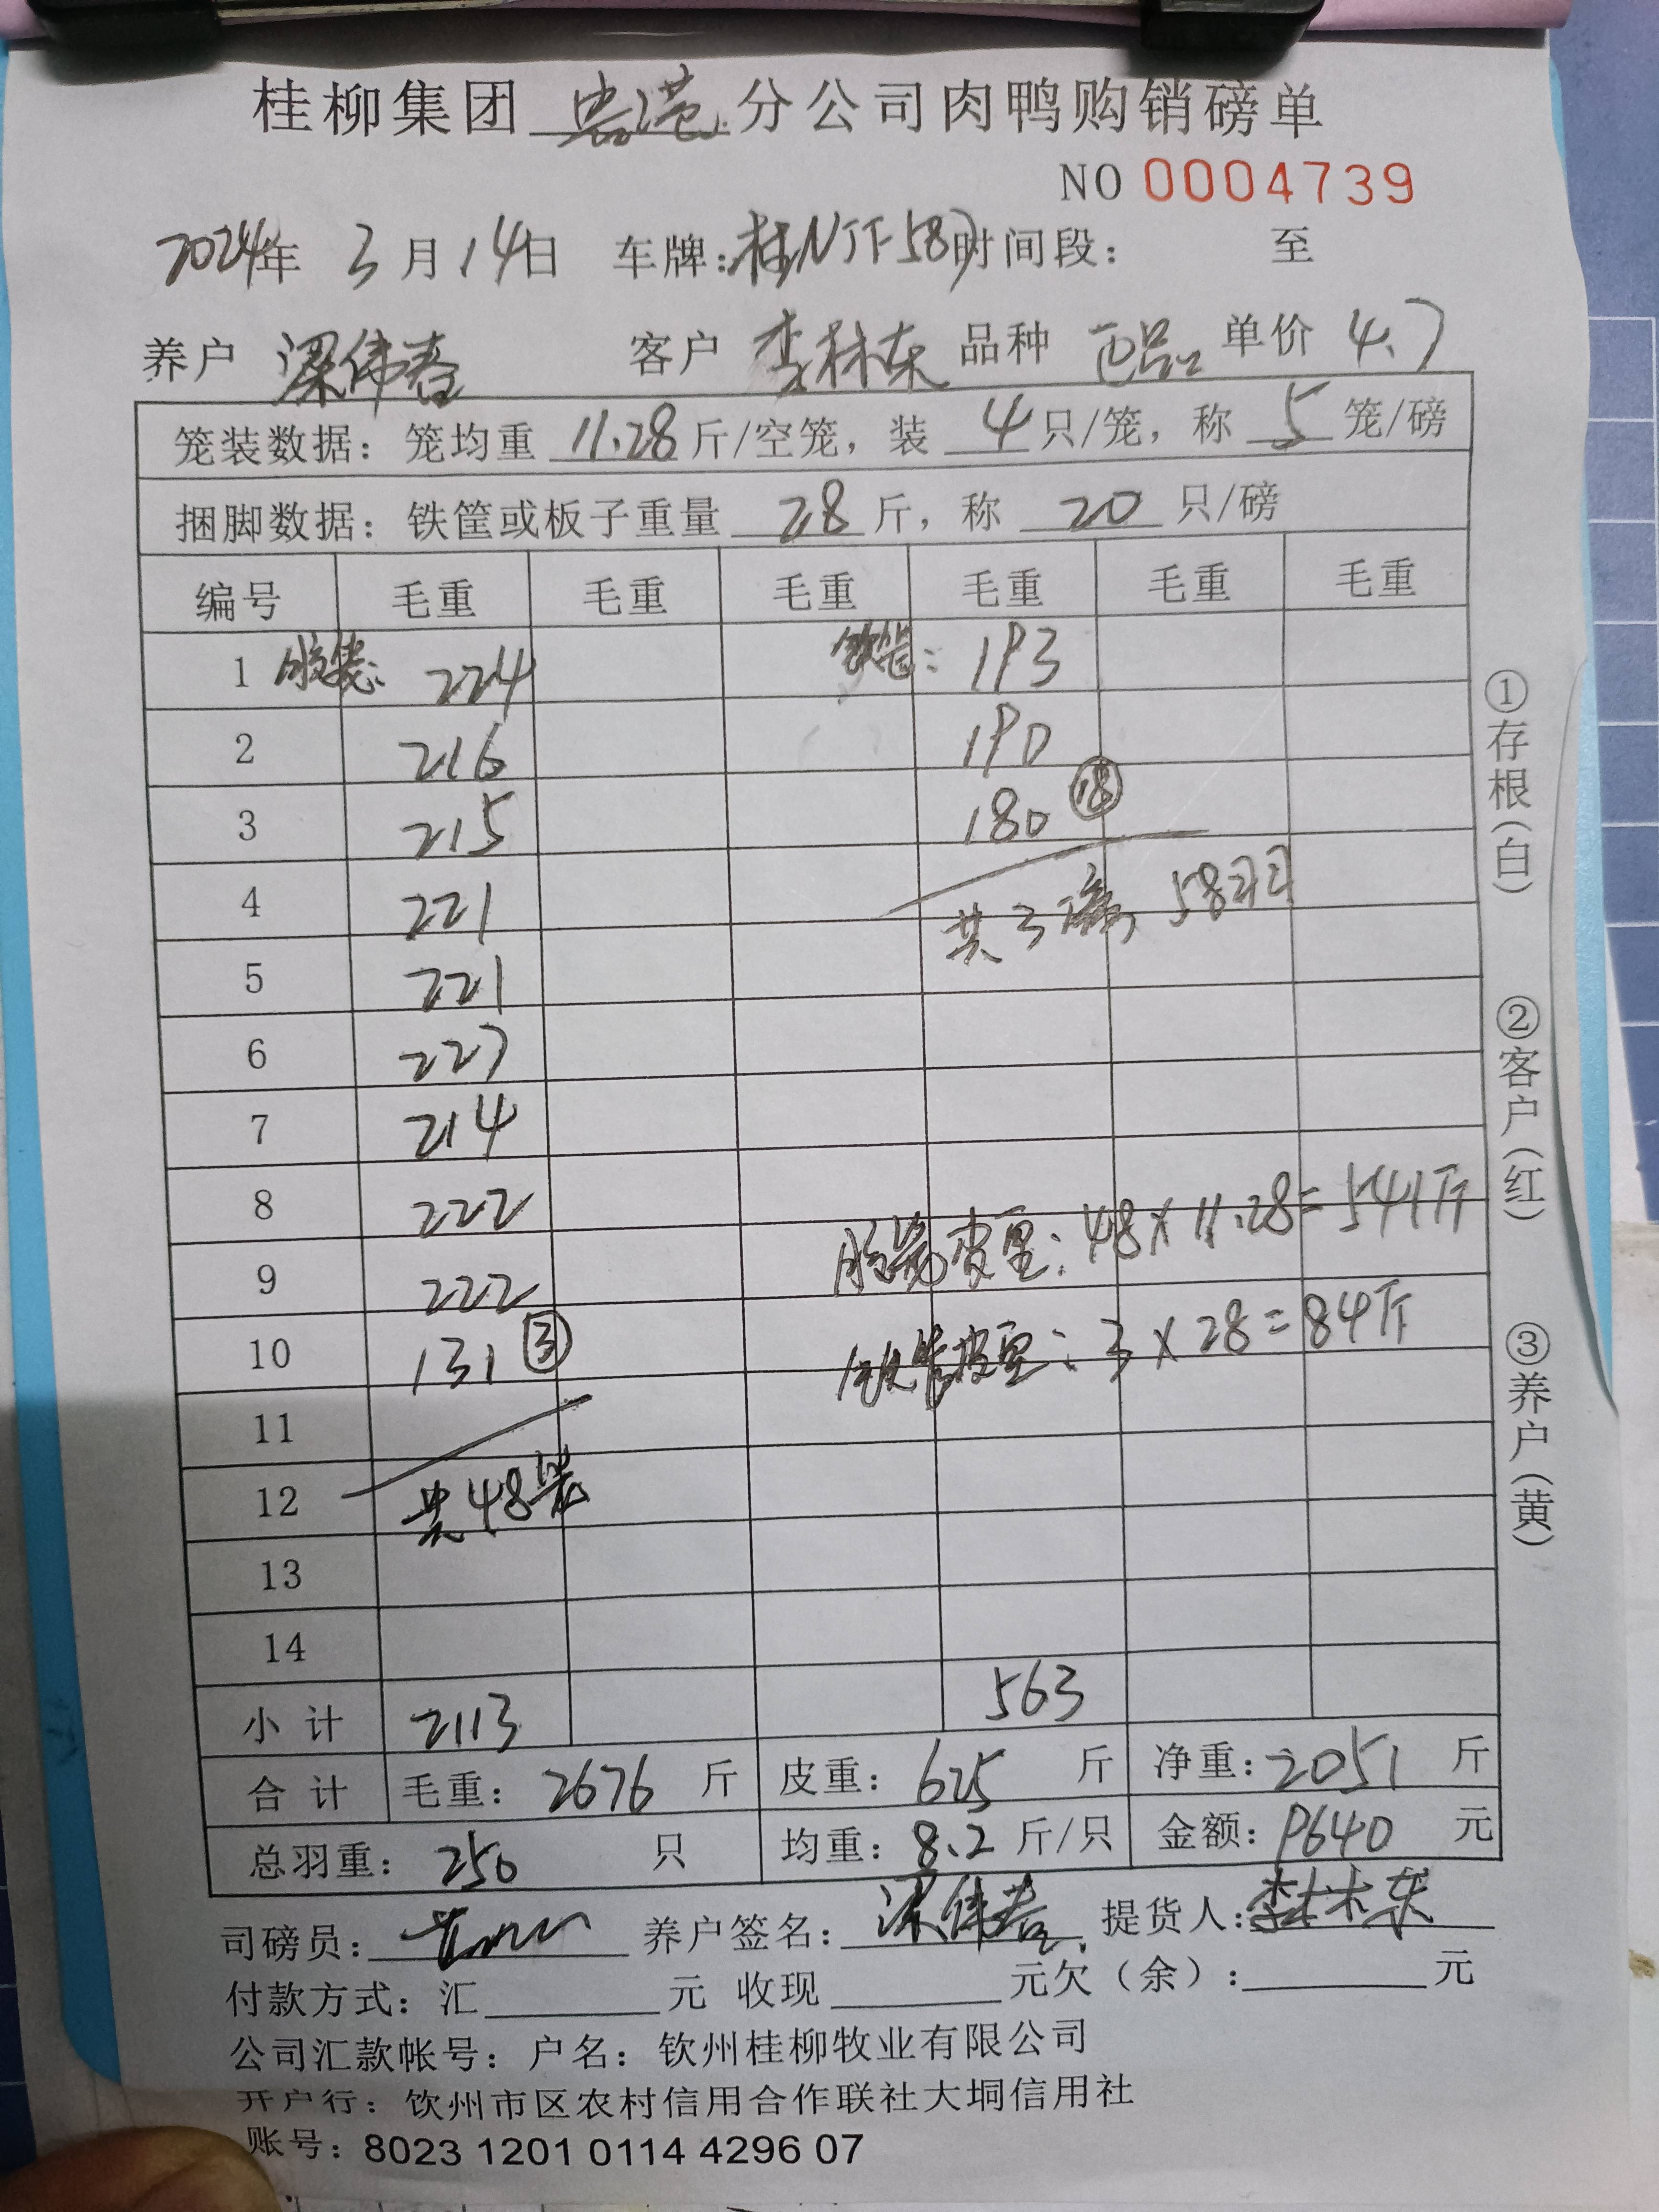 桂柳集团 贵港 分公司肉鸭购销磅单
NO 0004739
2024年 3月14日 车牌:桂NJF587 时间段: 至
养户 梁伟春 客户 李林东 品种 单价 4.7
笼装数据: 笼均重 11.28 斤/空笼, 装 4 只/笼, 称 5 笼/磅
捆脚数据: 铁筐或板子重量 28 斤, 称 20 只/磅
编号 毛重 毛重 毛重 毛重 毛重 毛重
1 胶笼: 224 铁笼: 193
2 216 190
3 215 180 ⑱
4 221 共3磅 58羽
5 221
6 227
7 214
8 222 胶笼皮重: 48×11.28=541斤
9 222
10 131 ③ 铁笼皮重: 3×28=84斤
11
12 共48笼
13
14
小计 2113 563
合计 毛重: 2676 斤 皮重: 625 斤 净重: 2051 斤
总羽重: 250 只 均重: 8.2 斤/只 金额: 9640 元
司磅员: 养户签名: 梁伟春 提货人: 李林东
付款方式: 汇 元 收现 元欠(余): 元
公司汇款帐号: 户名: 钦州桂柳牧业有限公司
开户行: 钦州市区农村信用合作联社大垌信用社
账号: 8023 1201 0114 4296 07
①存根(白)
②客户(红)
③养户(黄)